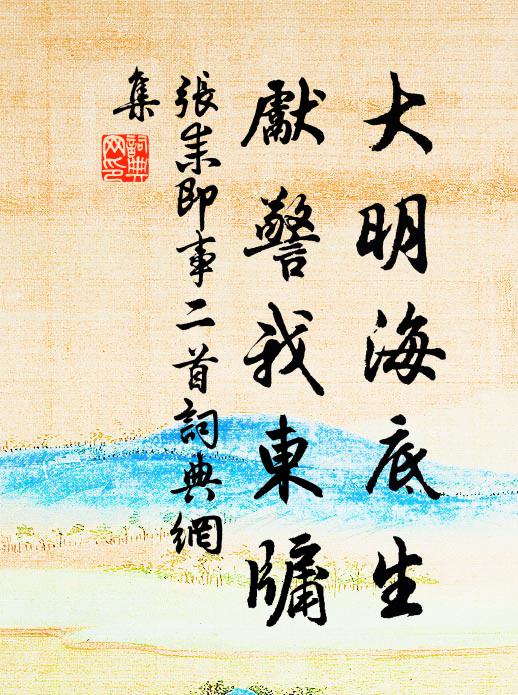 大明海底生
獻警我東牖
張耒即事二首詞典網
集
詞典
网印